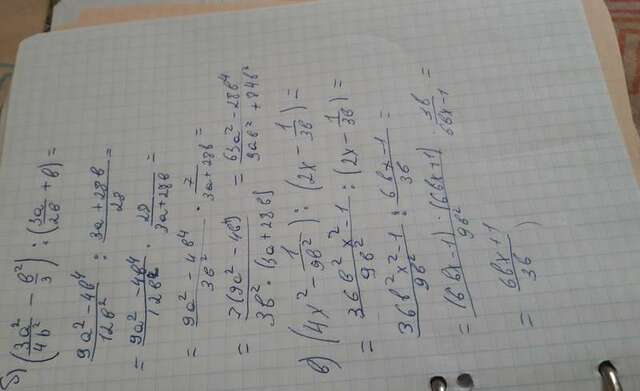 б) (3a²/4b² - b²/3) : (3a/2b + b) =
(9a² - 4b⁴)/12b² : (3a + 28b)/28
= (9a² - 4b⁴)/12b² · 28/(3a + 28b) =
= (9a² - 4b⁴)/3b² · 7/(3a + 28b) =
= 7(9a² - 4b⁴)/(3b² · (3a + 28b)) = (63a² - 28b⁴)/(9ab² + 84b³)
в) (4x² - 1/9b²) : (2x - 1/3b) =
= (36b²x² - 1)/9b² : (2x - 1/3b) =
(36b²x² - 1)/9b² : (6bx - 1)/3b =
= (6bx - 1) · (6bx + 1)/9b² · 3b/(6bx - 1) =
= (6bx + 1)/3b